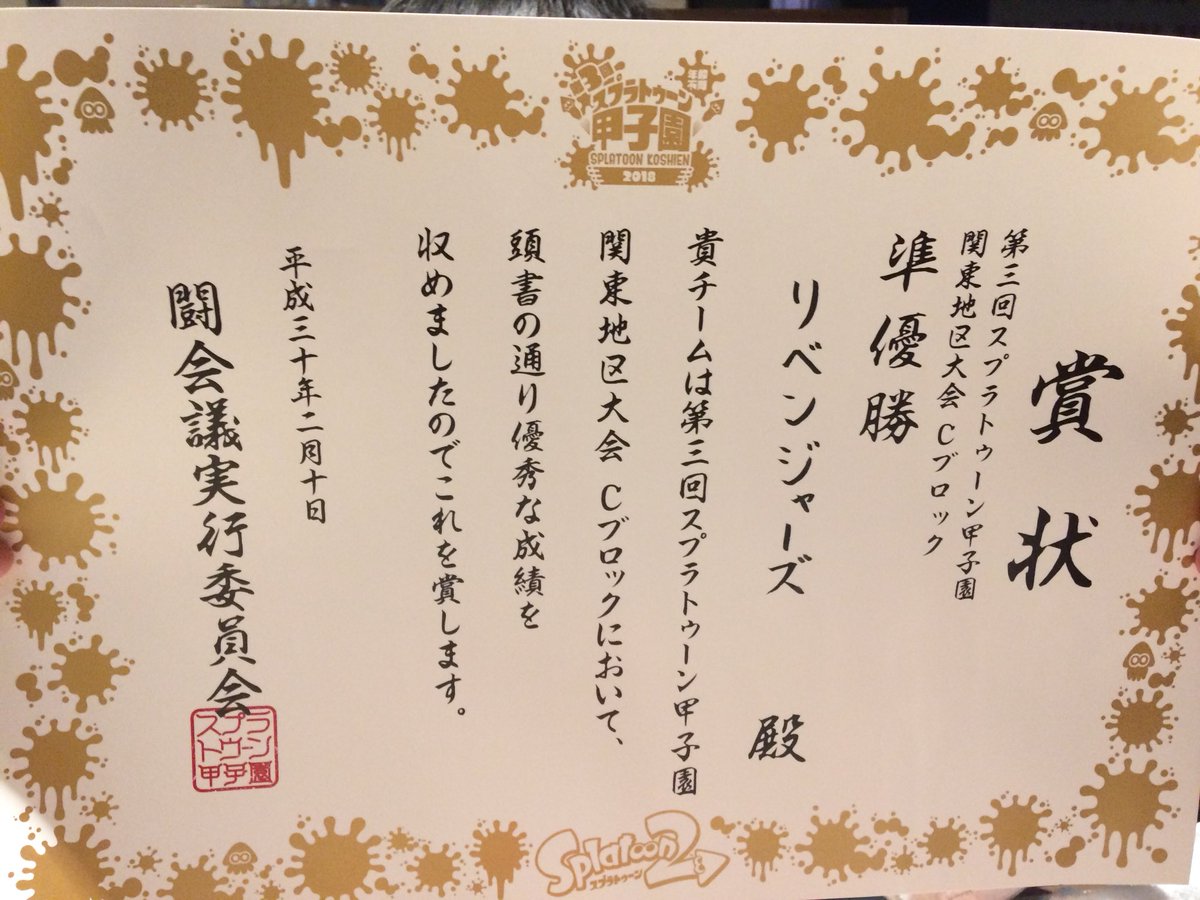 第3回
スプラトゥーン
甲子園
SPLATOON KOSHIEN
2018
賞状
第三回スプラトゥーン甲子園
関東地区大会 Cブロック
準優勝
リベンジャーズ 殿
貴チームは第三回スプラトゥーン甲子園
関東地区大会 Cブロックにおいて、
頭書の通り優秀な成績を
収めましたのでこれを賞します。
平成三十年二月十日
闘会議実行委員会
スプラ
トゥーン
甲子園
Splatoon2
スプラトゥーン